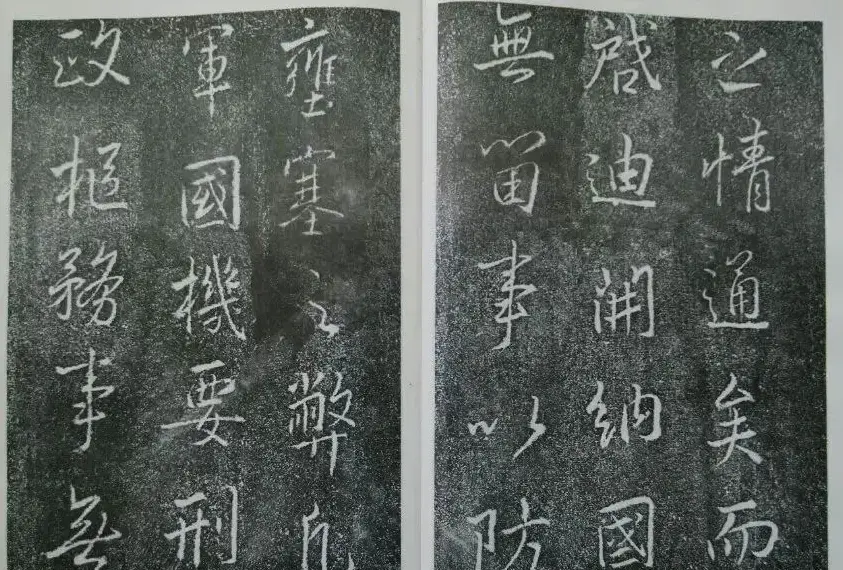 之情通矣而
啟迪開納國
無留事以防
壅塞之弊凡
軍國機要刑
政樞務事無